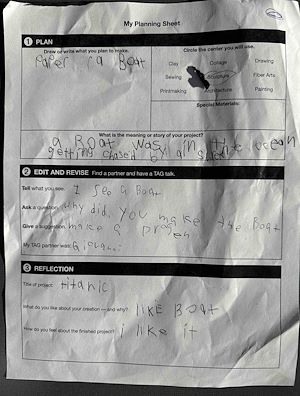 My Planning Sheet
1 PLAN
Draw or write what you plan to make.
Circle the center you will use.
Clay Collage Drawing
Sewing Sculpture Fiber Arts
Printmaking Architecture Painting
Special Materials:
Boat
What is the meaning or story of your project?
a Boat was in the ocean
getting chased by a
2 EDIT AND REVISE Find a partner and have a TAG talk.
Tell what you see. I see a Boat
Ask a question. why did you make the Boat
Give a suggestion. make a
My TAG partner was:
3 REFLECTION
Title of project: titanic
What do you like about your creation—and why? like Boat
How do you feel about the finished project? i like it